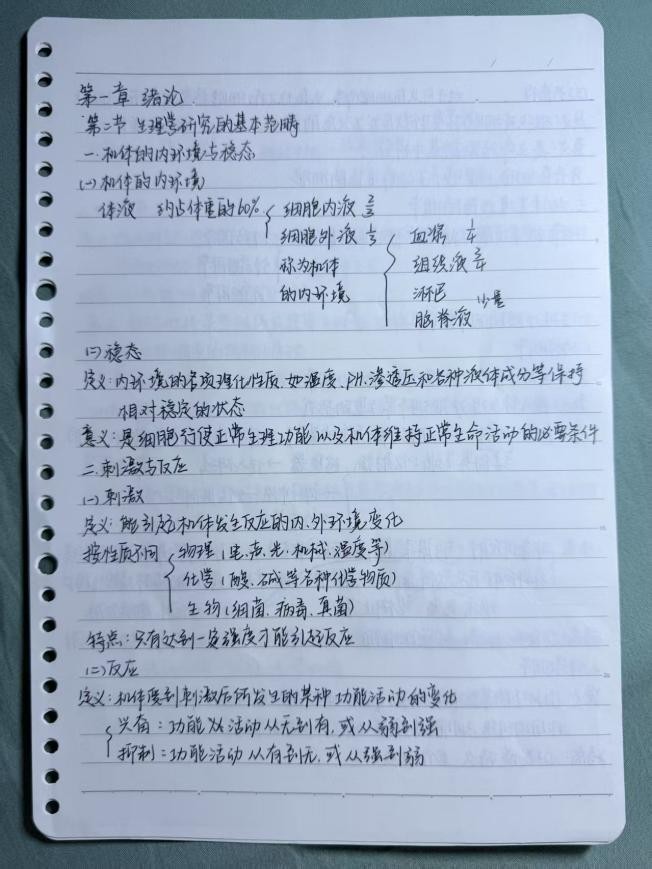 第一章 绪论
第二节 生理学研究的基本范畴
一.机体的内环境与稳态
(一)机体的内环境
体液 约占体重的60% 细胞内液 2/3
细胞外液 1/3 血浆 1/4
称为机体 组织液 3/4
的内环境 淋巴
脑脊液 少量
(二)稳态
定义:内环境的各项理化性质.如温度、PH.渗透压和各种液体成分等保持
相对稳定的状态
意义:是细胞行使正常生理功能以及机体维持正常生命活动的必要条件
二.刺激与反应
(一)刺激
定义:能引起机体发生反应的内、外环境变化
按性质不同 物理(电.声.光.机械.温度等)
化学(酸、碱等各种化学物质)
生物(细菌.病毒.真菌)
特点:只有达到一定强度才能引起反应
(二)反应
定义:机体受到刺激后所发生的某种功能活动的变化
兴奋:功能活动从无到有,或从弱到强
抑制:功能活动从有到无,或从强到弱